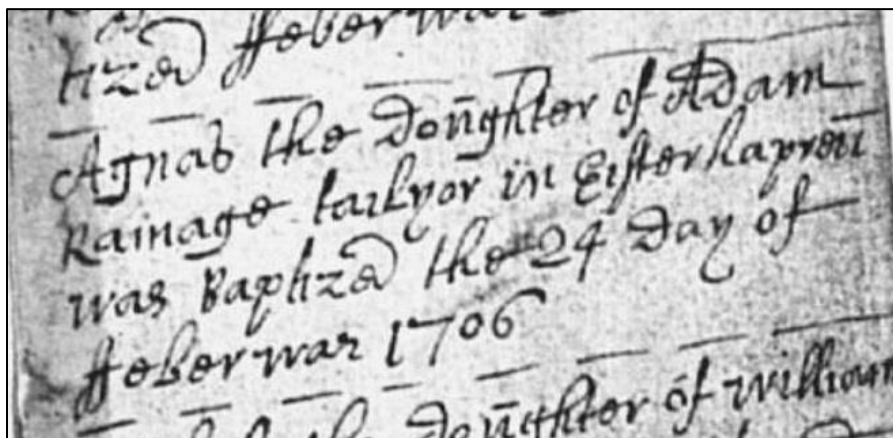 tized ffeberwar
Agnas the doughter of Adam
Rainage tailyor in Eisterhapreu
was Baptized the 24 Day of
ffeberwar 1706
the doughter of william